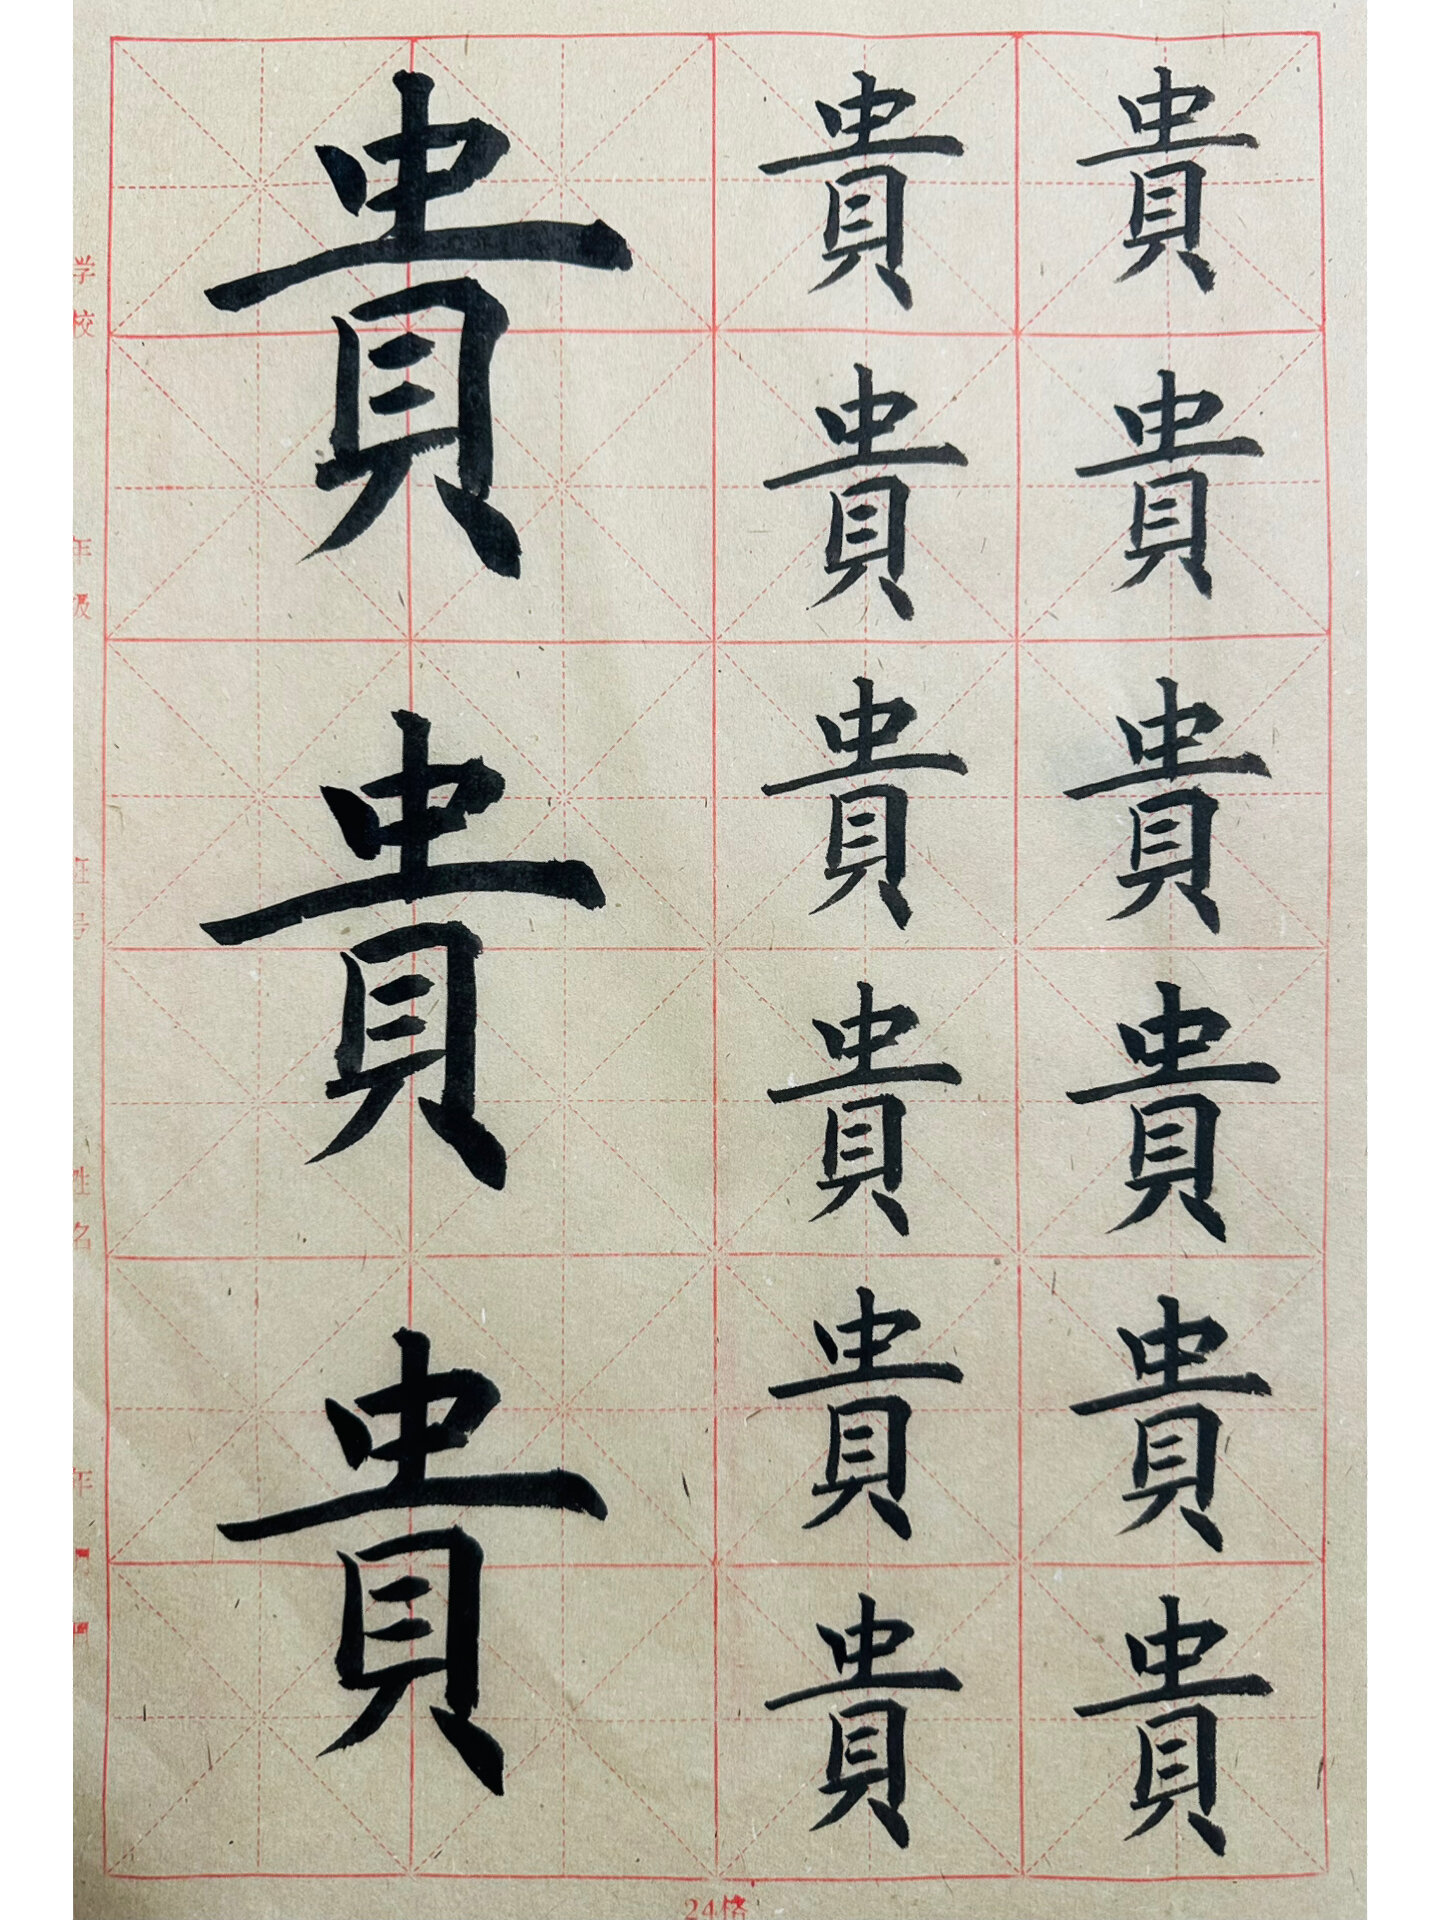 貴 貴 貴
貴 貴
貴 貴 貴
貴 貴
貴 貴 貴
貴 貴
学校
年级
姓名
年
24格